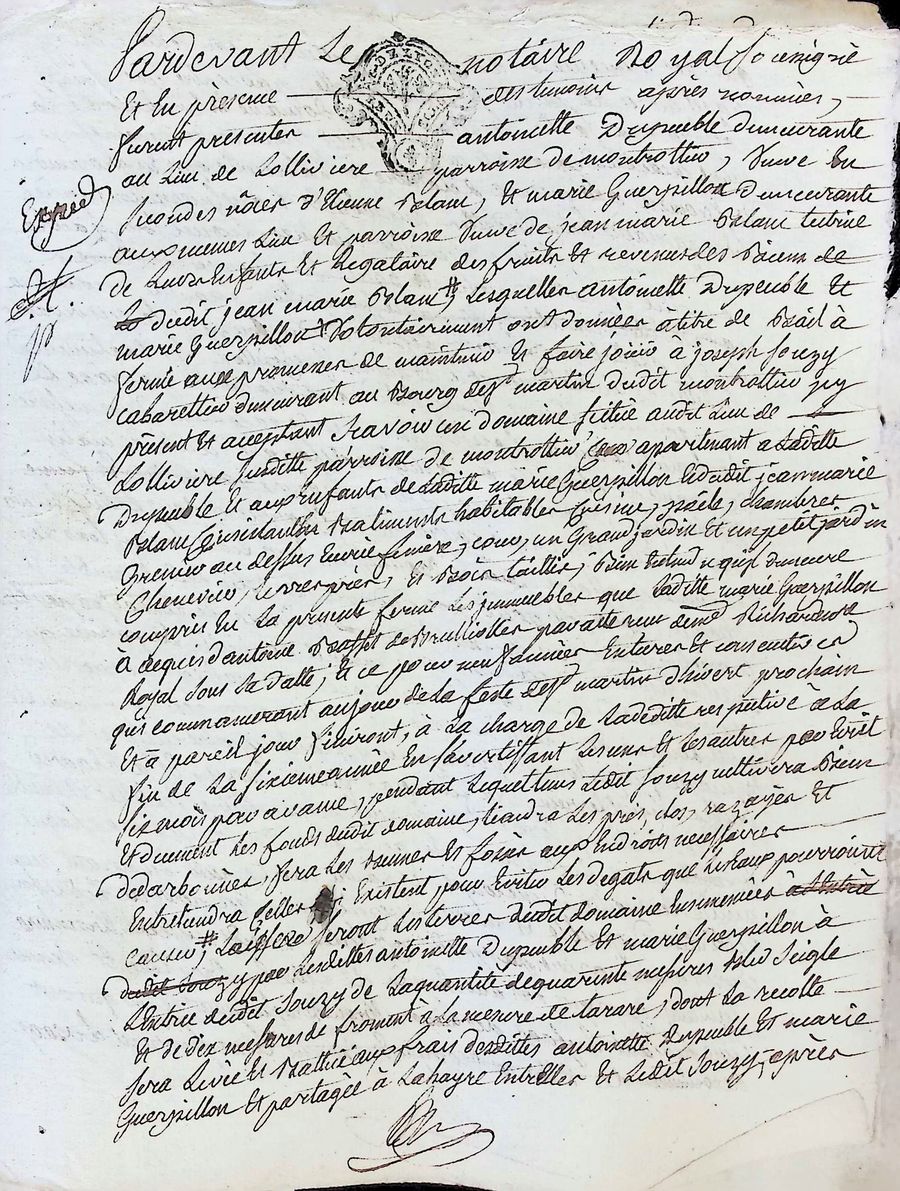 Pardevant Le notaire Royal soussigné
Et En présence des temoins après nommés,
furent presentes antoinette Dupeuble demeurante
au Lieu de Lolliviere parroisse de montrottier, Veuve En
secondes nôces d'Etienne Blanc, Et marie Guerpillon demeurante
aux memes Lieu Et parroisse Veuve de jean marie Blanc tutrice
de Leurs Enfants Et Legataire des fruits et revenus des Biens de
dudit jean marie Blanc #, Lesquelles antoinette Dupeuble Et
marie Guerpillon Volontairement ont données à titre de Bail à
ferme aux promesses de maintenir Et faire jouir à joseph Souzy
cabarettier demeurant au Bourg de st martin dudit montrottier icy
présent Et acceptant sçavoir un domaine situé audit Lieu de
Lolliviere susditte parroisse de montrottier apartenant a Laditte
Dupeuble Et aux Enfants de Laditte marie Guerpillon Et dudit jean marie
Blanc Consistant En Batiments habitables Cuisine, poële, chambres
Grenier au dessus Ecurie feniere, cour, un Grand jardin Et un petit jardin
Chenevier, terres, prés, Et Bois taillis; Bien Entendu qu'il demeure
compris En La presente ferme Les jmmeubles que Laditte marie Guerpillon
à acquis d'antoine de Brulliolles par acte reçu Me Richard nore
Royal sous sa datte; Et ce pour neuf années Entieres et consecutives
qui commanceront au jour de La feste de st martin d'hivert prochain
Et à pareil jour finiront, à La charge de La deditte respective à La
fin de La sixieme année En s'avertissant Les uns Et Les autres par Ecrit
six mois par avance, pendant Lequel tems Ledit Souzy cultivera Bien
Et duement Les fonds dudit domaine, tiendra Les prés, clos, razayés Et
dedarbounés, fera Les Et foins aux Endroits necessaires
Entretiendra Celles qui Existent pour Eviter Les degats que Les Eaux pourroient
causer #, seront Les terres dudit domaine Ensemencées
dudit Souzy par Lesdittes antoinette Dupeuble Et marie Guerpillon à
L'entrée dudit Souzy de La quantité de quarante mesures Bled seigle
Et de dix mesures de froment à La mesure de tarare, dont La recolte
sera Levée Et Battue aux frais desdittes antoinette Dupeuble Et marie
Guerpillon Et partagée à L'ayre Entr'elles Et Ledit Souzy, après